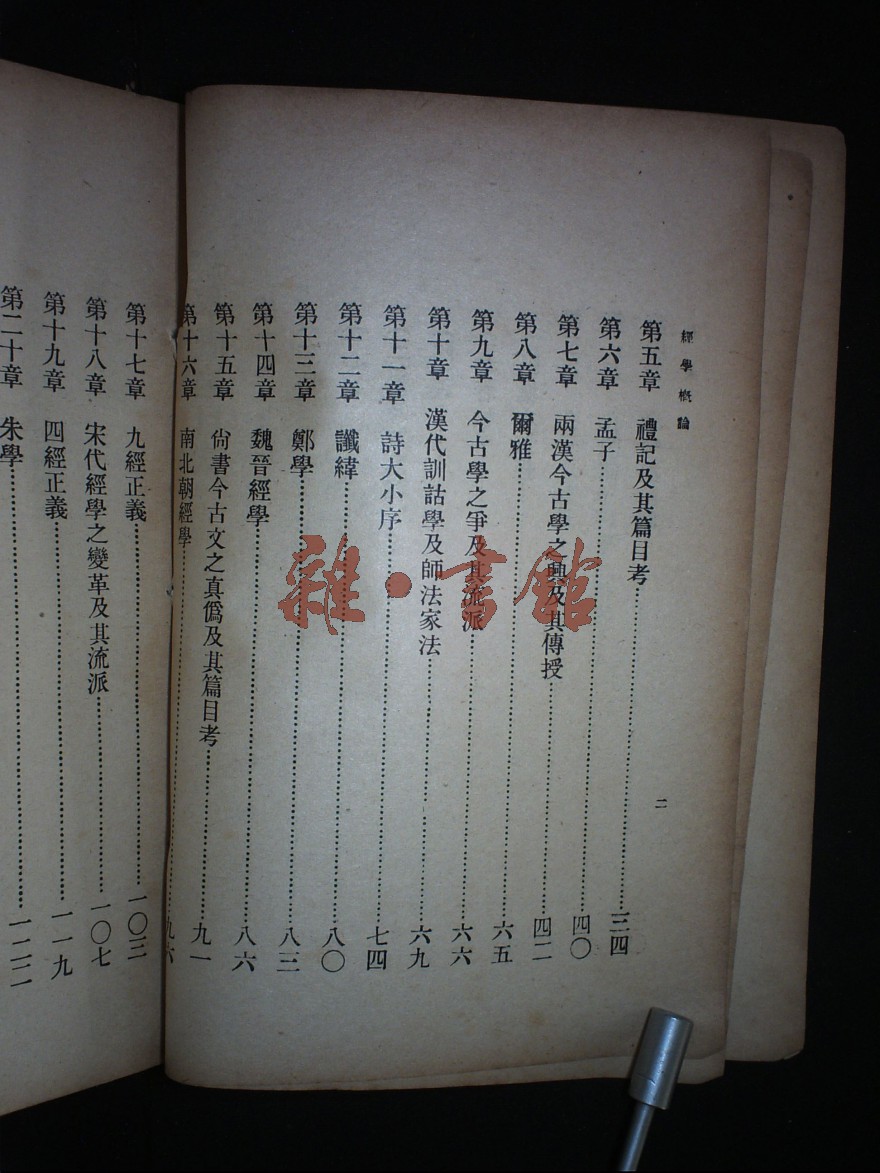 經學概論
第五章 禮記及其篇目考 三四
第六章 孟子 四〇
第七章 兩漢今古學之興及其傳授 四二
第八章 爾雅 六五
第九章 今古學之爭及其流派 六六
第十章 漢代訓詁學及師法家法 六九
第十一章 詩大小序 七四
第十二章 讖緯 八〇
第十三章 鄭學 八三
第十四章 魏晉經學 八六
第十五章 尙書今古文之真僞及其篇目考 九一
第十六章 南北朝經學 九六
二
第十七章 九經正義 一〇三
第十八章 宋代經學之變革及其流派 一〇七
第十九章 四經正義 一一九
第二十章 朱學 一二二
雜·書館